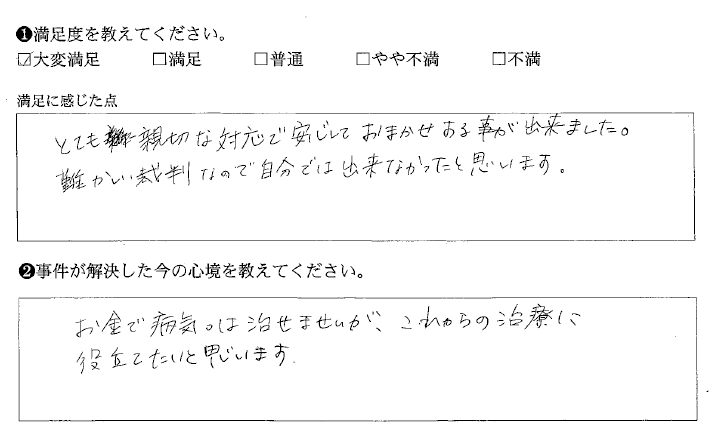 ❶満足度を教えてください。
☑大変満足 □満足 □普通 □やや不満 □不満
満足に感じた点
とても親切な対応で安心しておまかせする事が出来ました。
難かしい裁判なので自分では出来なかったと思います。
❷事件が解決した今の心境を教えてください。
お金で病気は治せませんが、これからの治療に
役立てたいと思います.